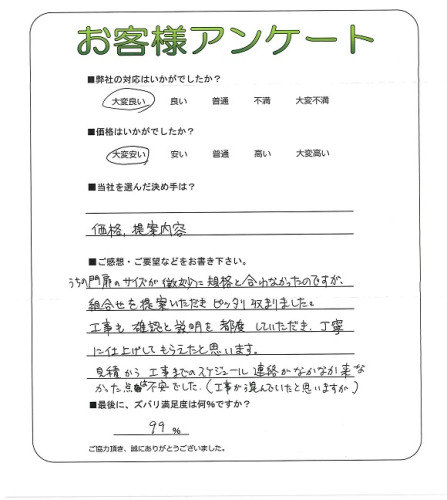 お客様アンケート
■弊社の対応はいかがでしたか？
大変良い 良い 普通 不満 大変不満
■価格はいかがでしたか？
大変安い 安い 普通 高い 大変高い
■当社を選んだ決め手は？
価格，提案内容
■ご感想・ご要望などをお書き下さい。
うちの門扉のサイズが微妙に規格と合わなかったのですが、
組合せを提案いただき ピッタリ 収まりました。
工事も 確認と説明を 都度 していただき、丁寧
に仕上げして もらえたと思います。
見積から 工事までのスケジュール 連絡が なかなか来な
かった点は 不安でした。（工事が混んでいたと思いますが）
■最後に、ズバリ満足度は何％ですか？
99 ％
ご協力頂き、誠にありがとうございました。